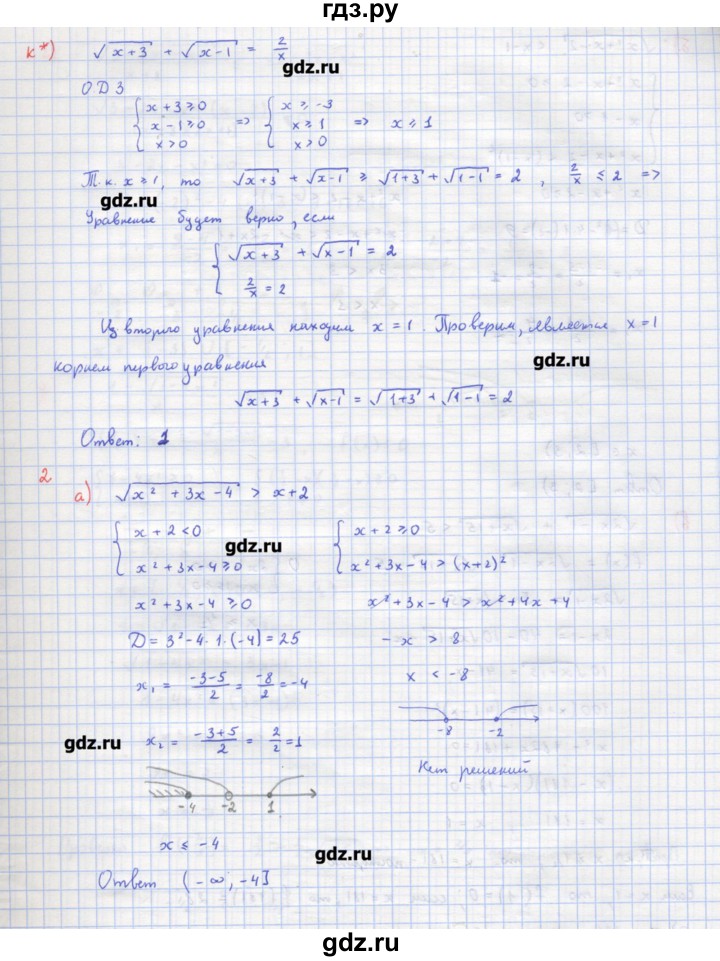 гдз.ру
к*) √(x+3) + √(x-1) = 2/x
gdz.ru
ОДЗ
{ x+3≥0 => { x ≥ -3
{ x-1≥0 => { x ≥ 1 => x ≥ 1
{ x>0 { x>0
Т.к. x ≥ 1, то √(x+3) + √(x-1) ≥ √(1+3) + √(1-1) = 2 , 2/x ≤ 2 =>
gdz.ru
Уравнение будет верно, если
{ √(x+3) + √(x-1) = 2
{ 2/x = 2
Из второго уравнения находим x = 1. Проверим, является x=1
gdz.ru
корнем первого уравнения
√(x+3) + √(x-1) = √(1+3) + √(1-1) = 2
Ответ: 1
2
а) √(x² + 3x - 4) > x+2
{ x+2<0 { x+2≥0
gdz.ru
{ x²+3x-4≥0 { x²+3x-4 > (x+2)²
x²+3x-4 ≥0 x²+3x-4 > x²+4x+4
D = 3²-4·1·(-4) = 25 -x > 8
x₁ = (-3-5)/2 = -8/2 = -4 x < -8
-8 -2
gdz.ru
x₂ = (-3+5)/2 = 2/2 = 1
Нет решений
-4 -2 1
x ≤ -4
gdz.ru
Ответ (-∞, -4]
gdz.ru